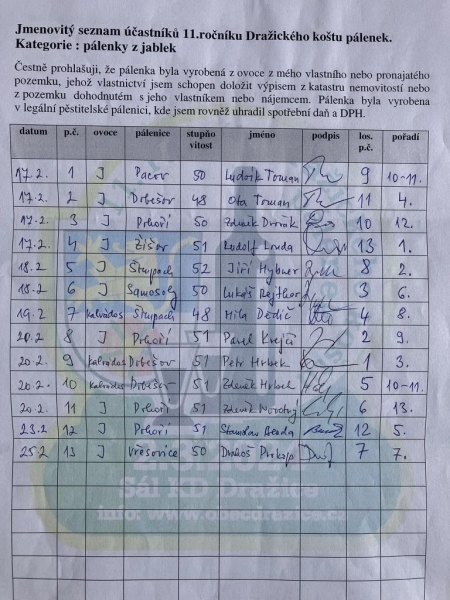 Jmenovitý seznam účastníků 11.ročníku Dražického koštu pálenek.
Kategorie : pálenky z jablek
Čestně prohlašuji, že pálenka byla vyrobená z ovoce z mého vlastního nebo pronajatého
pozemku, jehož vlastnictví jsem schopen doložit výpisem z katastru nemovitostí nebo
z pozemku dohodnutém s jeho vlastníkem nebo nájemcem. Pálenka byla vyrobena
v legální pěstitelské pálenici, kde jsem rovněž uhradil spotřební daň a DPH.
datum p.č. ovoce pálenice stupňo vitost jméno podpis los. p.č. pořadí
17.2. 1 J Pacov 50 Ludvík Toman 9 10-11.
17.2. 2 J Drbešov 48 Ota Toman 11 4.
17.2. 3 J Prhoří 50 Zdeněk 10 12.
17.2. 4 J Žíšov 51 Rudolf Louda 13 1.
18.2 5 J Škupach 52 Jiří Hybner 8 2.
18.2 6 J Samosoly 50 Lukáš 3 6.
19.2 7 kalvádos Škupach 48 Míla Dědič 4 8.
20.2 8 J Prhoří 51 Pavel Krejčí 2 9.
20.2. 9 kalvados Drbešov 51 Petr Hrbek 1 3.
20.2. 10 kalvados Drbešov 51 Zdeněk 5 10-11.
20.2. 11 J Prhoří 51 Zdeněk Novotný 6 13.
23.2 12 J Prhoří 51 Stanislav 12 5.
25.2 13 J Vřesovice 50 Prokop 7 7.
Sál KD Dražice
info: www.obecdrazice.cz